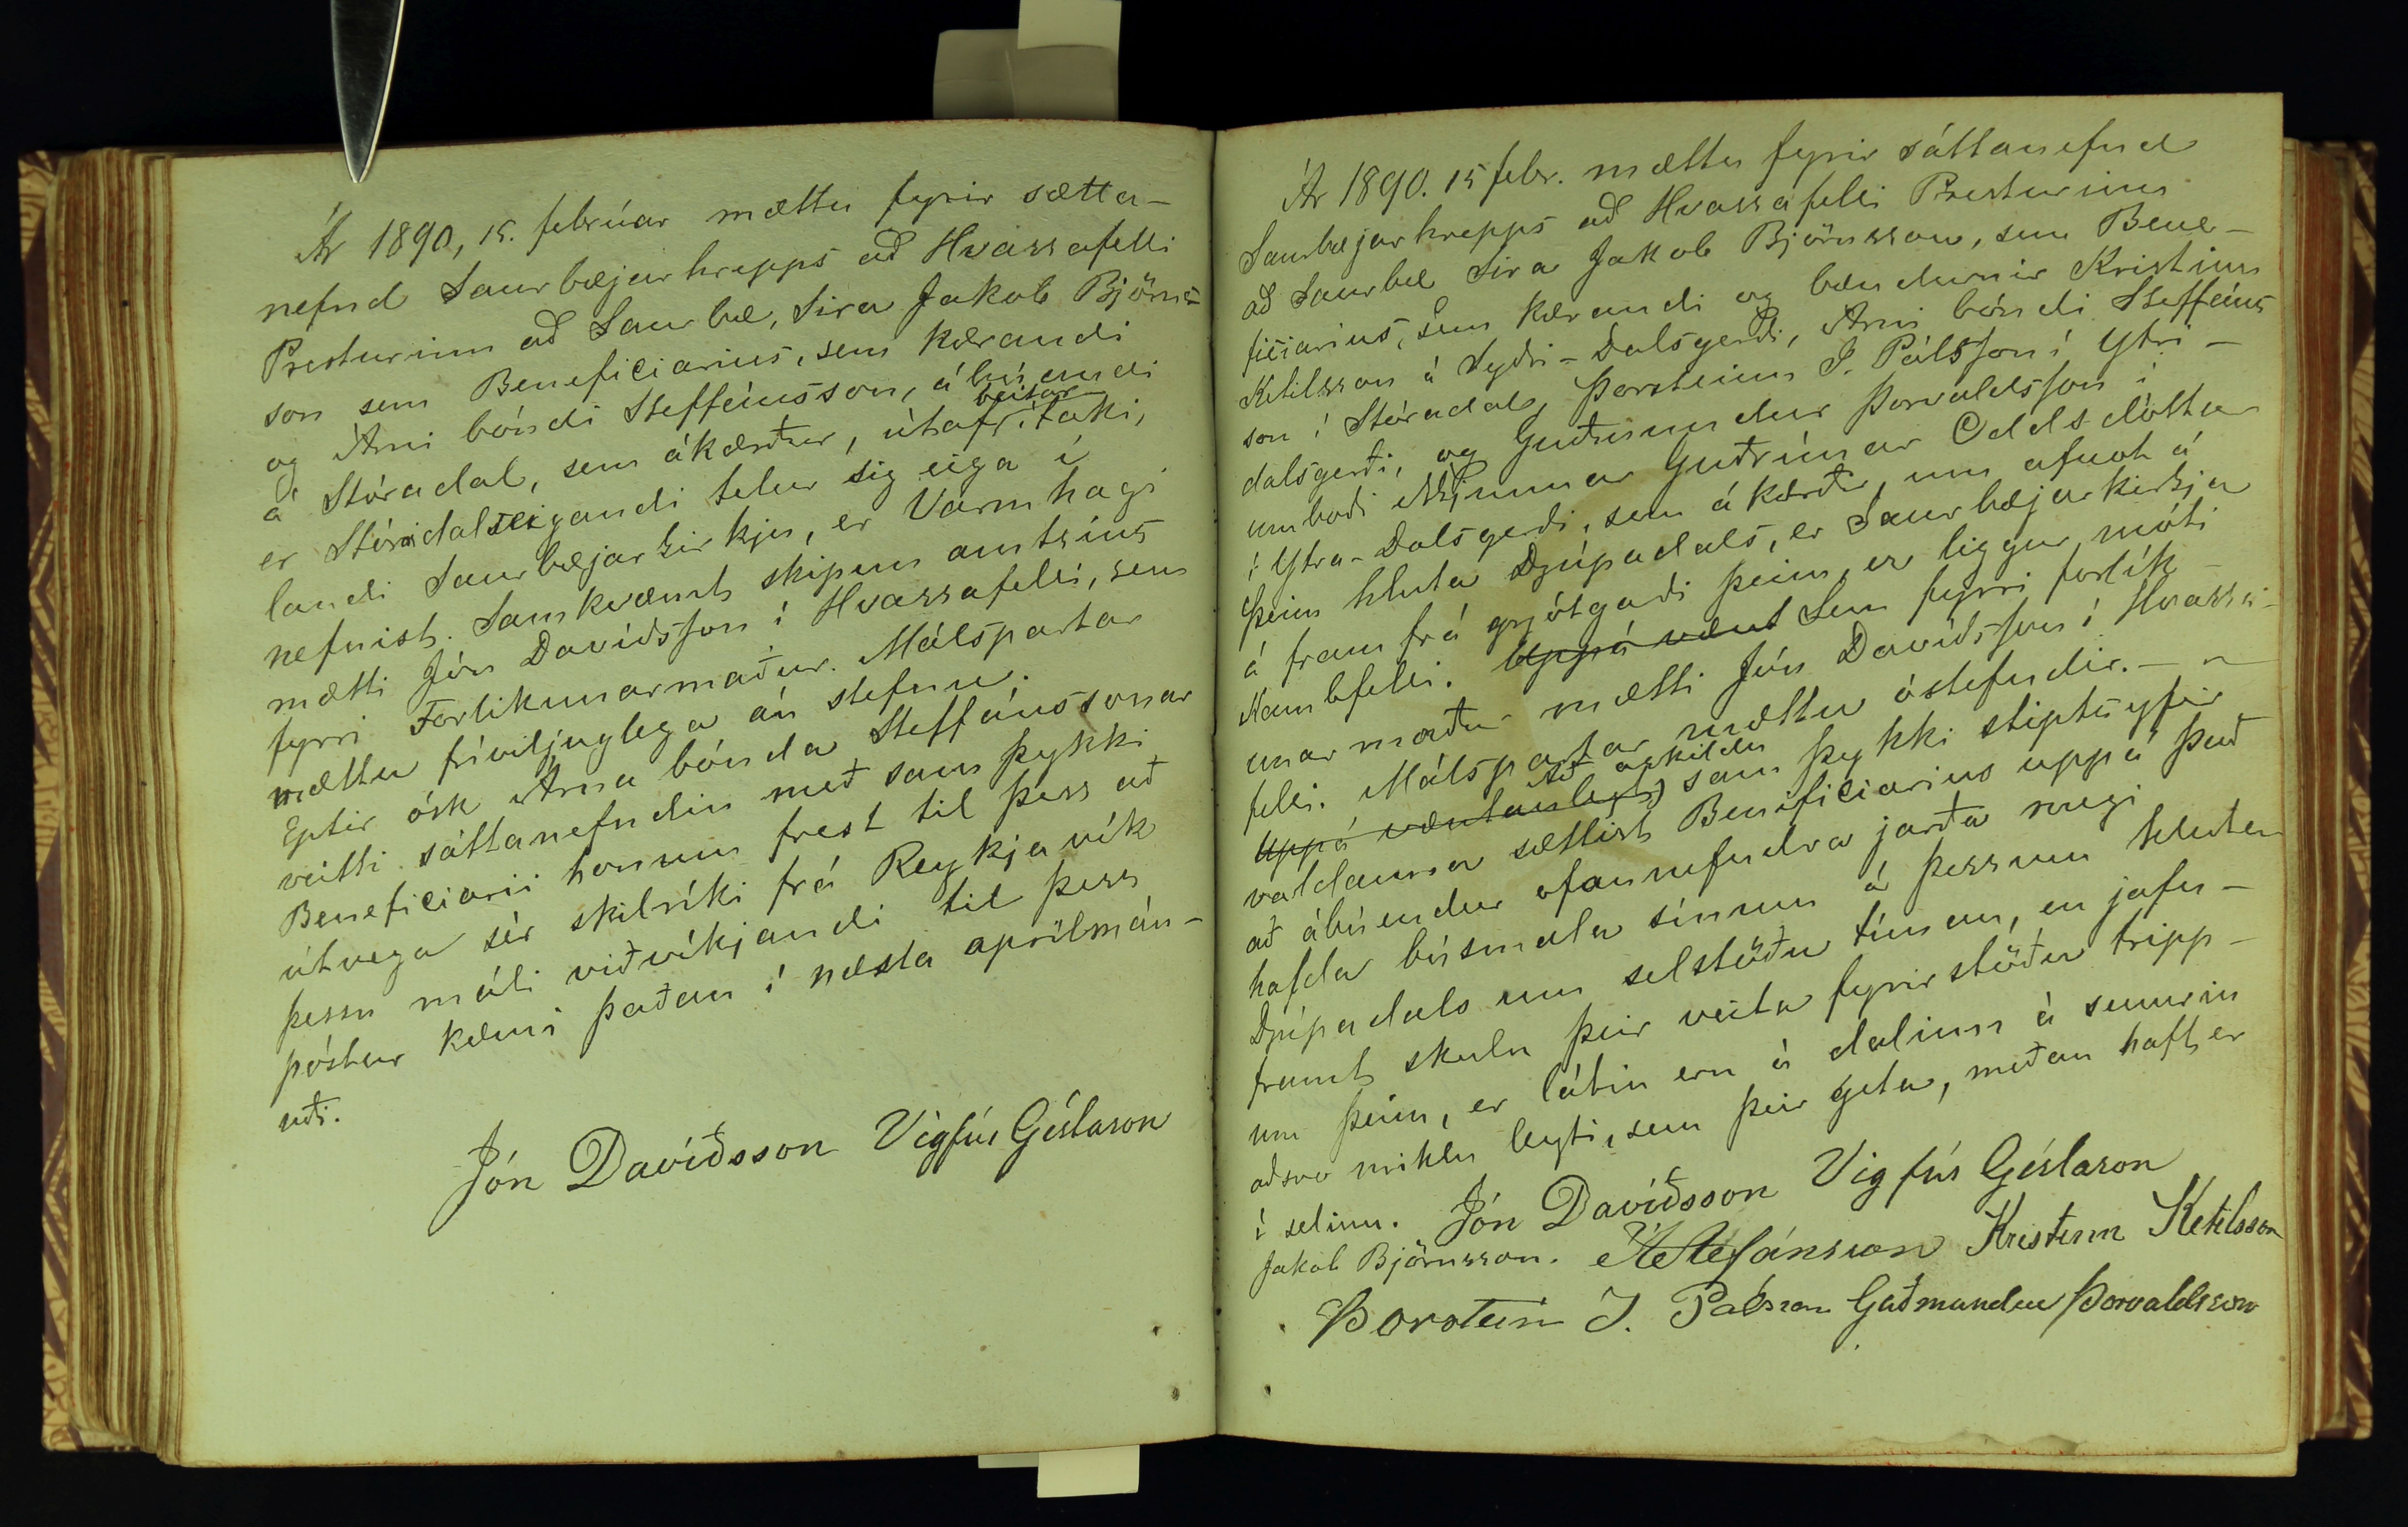 Ár 1890, 15. febrúar mættu fyrir sætta-
nefnd Saurbæjarhrepps að Hvassafelli
Presturinn að Saurbæ, Síra Jakob Björns-
son sem Beneficiarius, sem kærandi
og Árni bóndi Steffánsson, ábúandi
á Stóradal, sem ákærður, útaf beitar ítaki,
er Stóridalseigandi telur sig eiga í
landi Saurbæjarkirkju, er Varmhagi
nefnist. Samkvæmt skipun amtsins
mætti Jón Davíðsson í Hvassafelli, sem
fyrri Forlíkunarmaður. Málspartar
mættu fríviljuglega án stefnu.
Eptir ósk Árna bónda Steffánssonar
veitti sáttanefndin með samþykki
Beneficiarii honum frest til þess að
útvega sér skilríki frá Reykjavík
þessu máli viðvíkjandi til þess
póstur kæmi þaðan í næsta aprílmán-
uði.
Jón Davíðsson Vigfús Gíslason
Ár 1890. 15 febr. mættu fyrir sáttanefnd
Saurbæjarhrepps að Hvassafelli Presturinn
að Saurbæ Síra Jakob Björnsson, sem Bene-
ficiarius, sem kærandi og bændurnir Kristinn
Ketilsson á Syðri-Dalsgerði, Árni bóndi Steffáns
son í Stóradal, Þorsteinn J. Pálsson í Ytri-
dalsgerði, og Guðmundur Þorvaldsson í
umboði ekkjunnar Guðrúnar Oddsdóttur
í Ytra-Dalsgerði, sem ákærðir, um afnot á
þeim hluta Djúpadals, er Saurbæjarkirkja
á fram frá grjótgarði þeim, er liggur móti
Kambfelli. Uppá vænt Sem fyrri forlík-
unarmaður mætti Jón Davíðsson í Hvassa-
felli. Málspartar mættu óstefndir. -
Uppá væntanlegt Að áskildu samþykki stiptsyfir
valdanna sættist Beneficiarius uppá það
að ábúendur ofannefndra jarða megi
hafda búsmala sínum á þessum hluta
Djúpadals um selstöðu tímann, en jafn-
framt skulu þeir veita fyrirstöðu tripp-
um þeim, er látin eru á dalinn á sumrin
að svo miklu leyti, sem þeir geta, meðan haft er
í selinu. Jón Davíðsson Vigfús Gíslason
Jakob Björnsson. Á Stefánsson Kristinn Ketilsson
Þorsteinn J. Pálsson Guðmundur Þorvaldsson